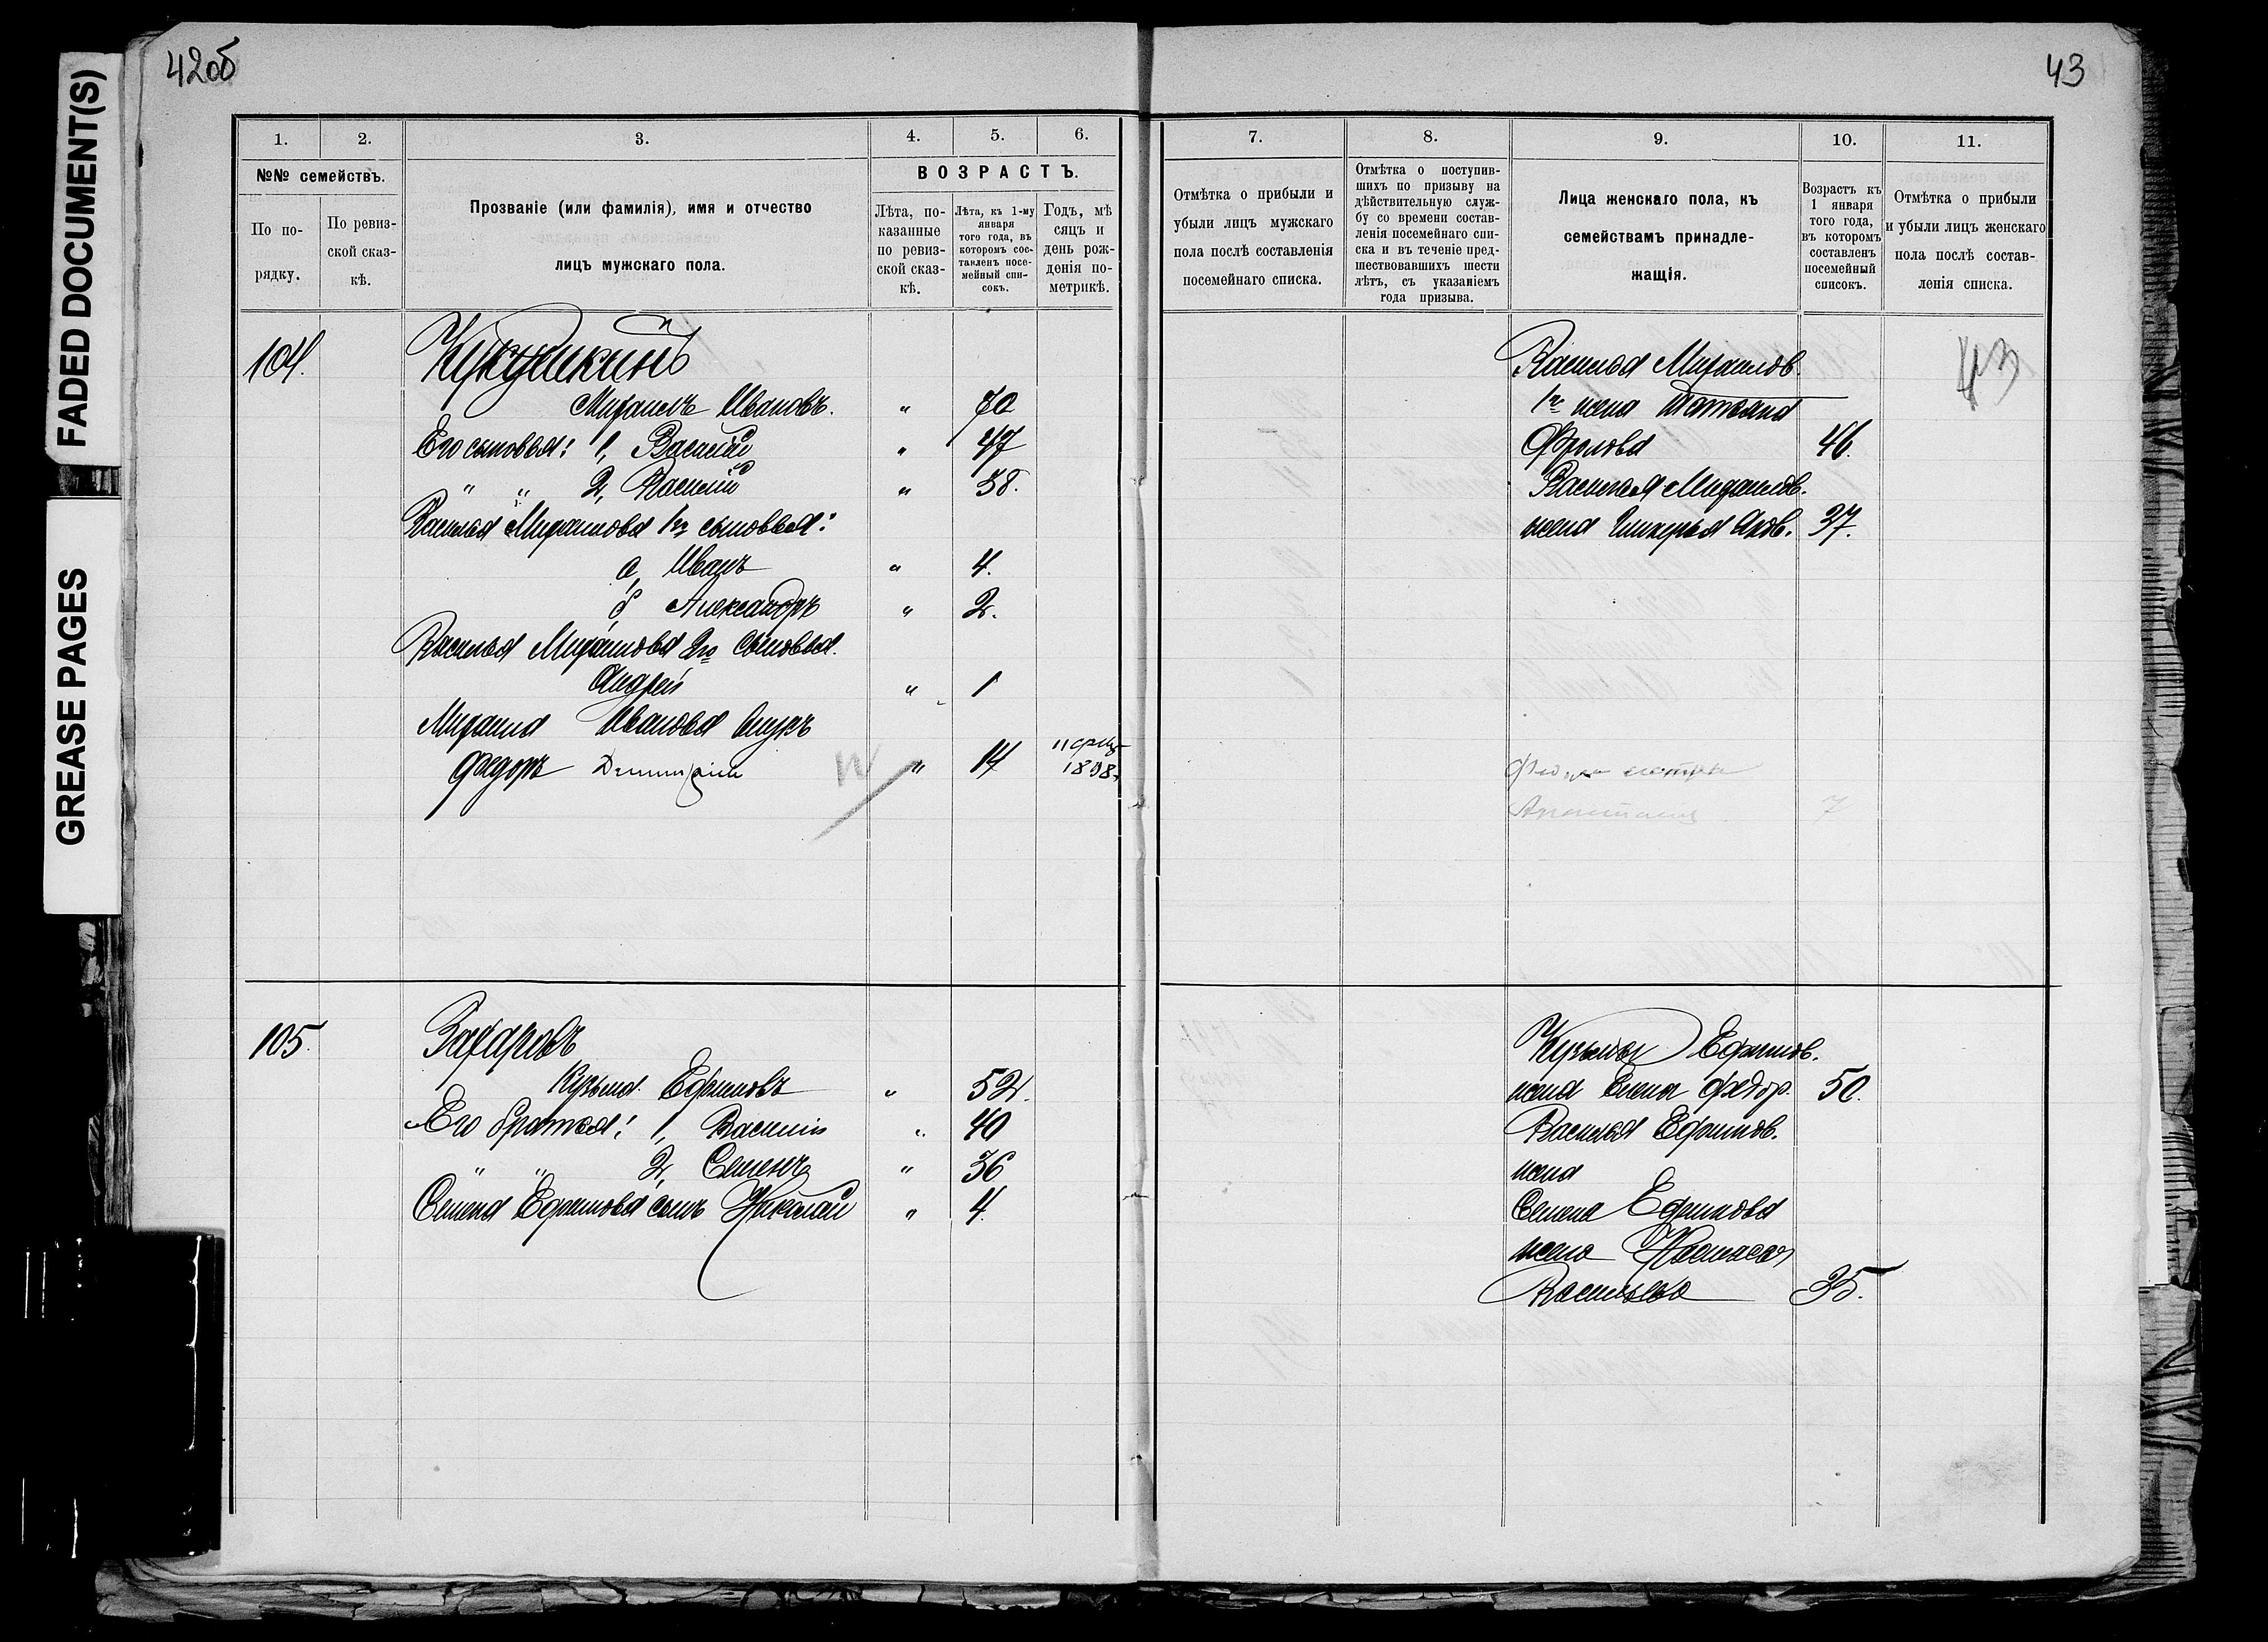 FADED DOCUMENT(S)
GREASE PAGES
42об
1.
2.
3.
4.
5.
6.
№№ семействъ.
По по-
рядку.
По ревиз-
ской сказ-
кѣ.
Прозваніе (или фамилія), имя и отчество
лицъ мужскаго пола.
ВОЗРАСТЪ.
Лѣта, по-
казанные
по ревиз-
ской сказ-
кѣ.
Лѣта, къ 1-му
января
того года, въ
которомъ сос-
тавленъ посе-
мейный спи-
сокъ.
Годъ, мѣ
сяцъ и
день рож-
денія по-
метрикѣ.
104. Кукушкинъ
Михаилъ Ивановъ. " 70
Его сыновья: 1, Василій " 47
" " 2, Василій " 38.
Василья Михаилова 1го сыновья:
а, Иванъ " 4.
б, Александръ " 2.
Василья Михаилова 2го сыновья.
Андрей " 1
Михаила Иванова внукъ
Федоръ " 14
105. Захаровъ
Кузьма Ефимовъ " 52.
Его братья: 1, Василій " 40
" " 2, Семенъ " 36
Семена Ефимова сынъ Николай " 4.
43
7.
8.
9.
10.
11.
Отмѣтка о прибыли и
убыли лицъ мужскаго
пола послѣ составленія
посемейнаго списка.
Отмѣтка о поступив-
шихъ по призыву на
дѣйствительную служ-
бу со времени состав-
ленія посемейнаго спи-
ска и въ теченіе пред-
шествовавшихъ шести
лѣтъ, съ указаніемъ
года призыва.
Лица женскаго пола, къ
семействамъ принадле-
жащія.
Возрастъ къ
1 января
того года,
въ которомъ
составленъ
посемейный
списокъ.
Отмѣтка о прибыли
и убыли лицъ женскаго
пола послѣ состав-
ленія списка.
43
Василья Михаилов.
1го жена Татьяна
Фролова 46.
Василья Михаилов.
жена Гликерья Яков. 37.
сестра
Анастасия 7
Кузьмы Ефимов.
жена Елена Федор. 50.
Василья Ефимов.
жена
Семена Ефимова
жена Настасья
Васильева 35.